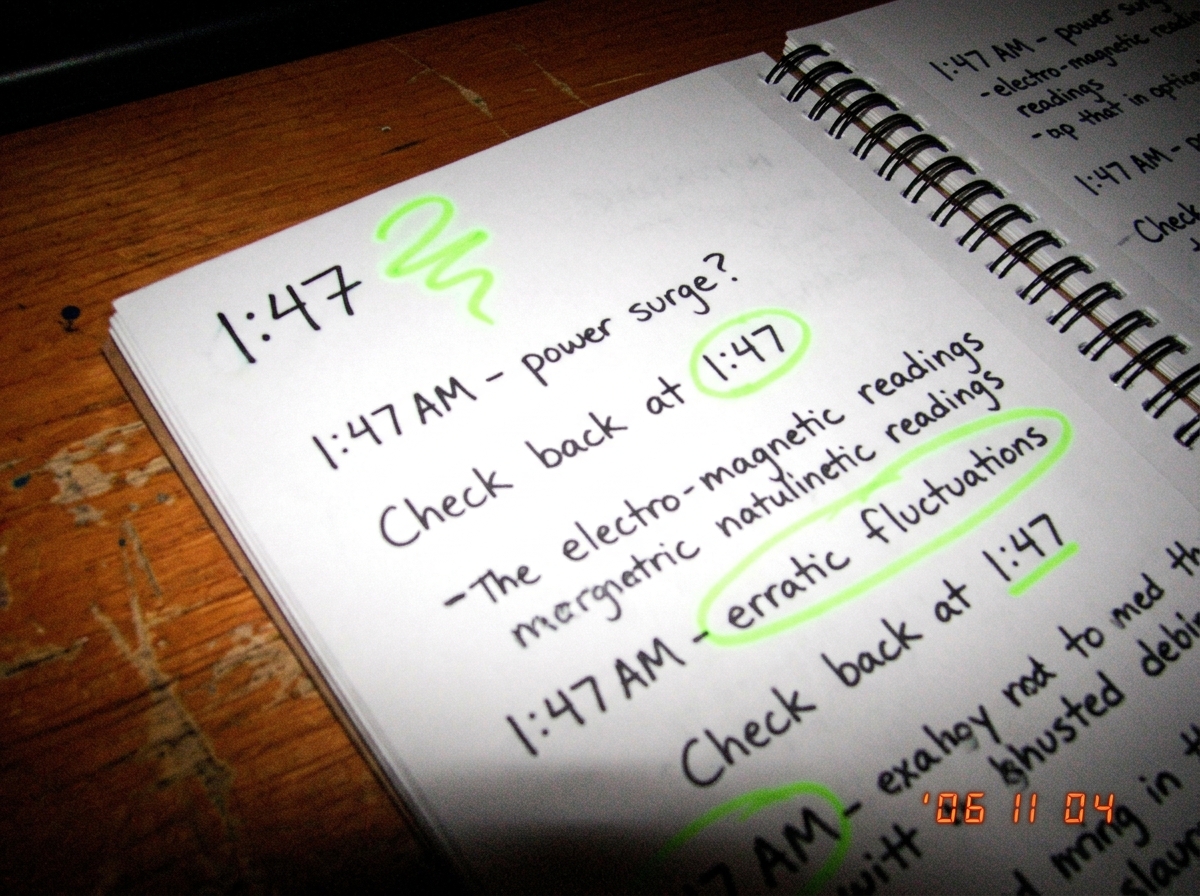 1:47
1:47 AM - power surge?
Check back at 1:47
-The electro-magnetic readings
margnetric natulinetic readings
1:47 AM - erratic fluctuations
Check back at 1:47
7 AM - exahoy rod to med th
witt shusted debi
d mring in th
slaun
1:47 AM - power surg
-electro-magnetic readi
readings
-ap that in optica
1:47 AM - p
Check
'06 11 04